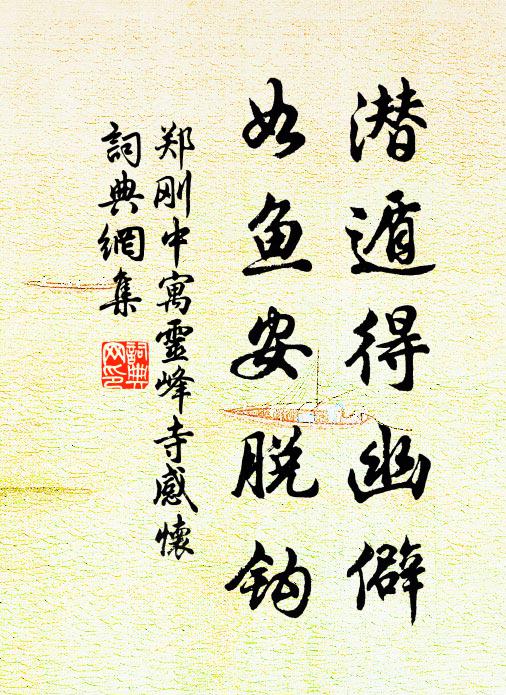 潜遁得幽僻
如鱼安脱钩
郑刚中寓靈峰寺感懷
詞典網集
詞典网印